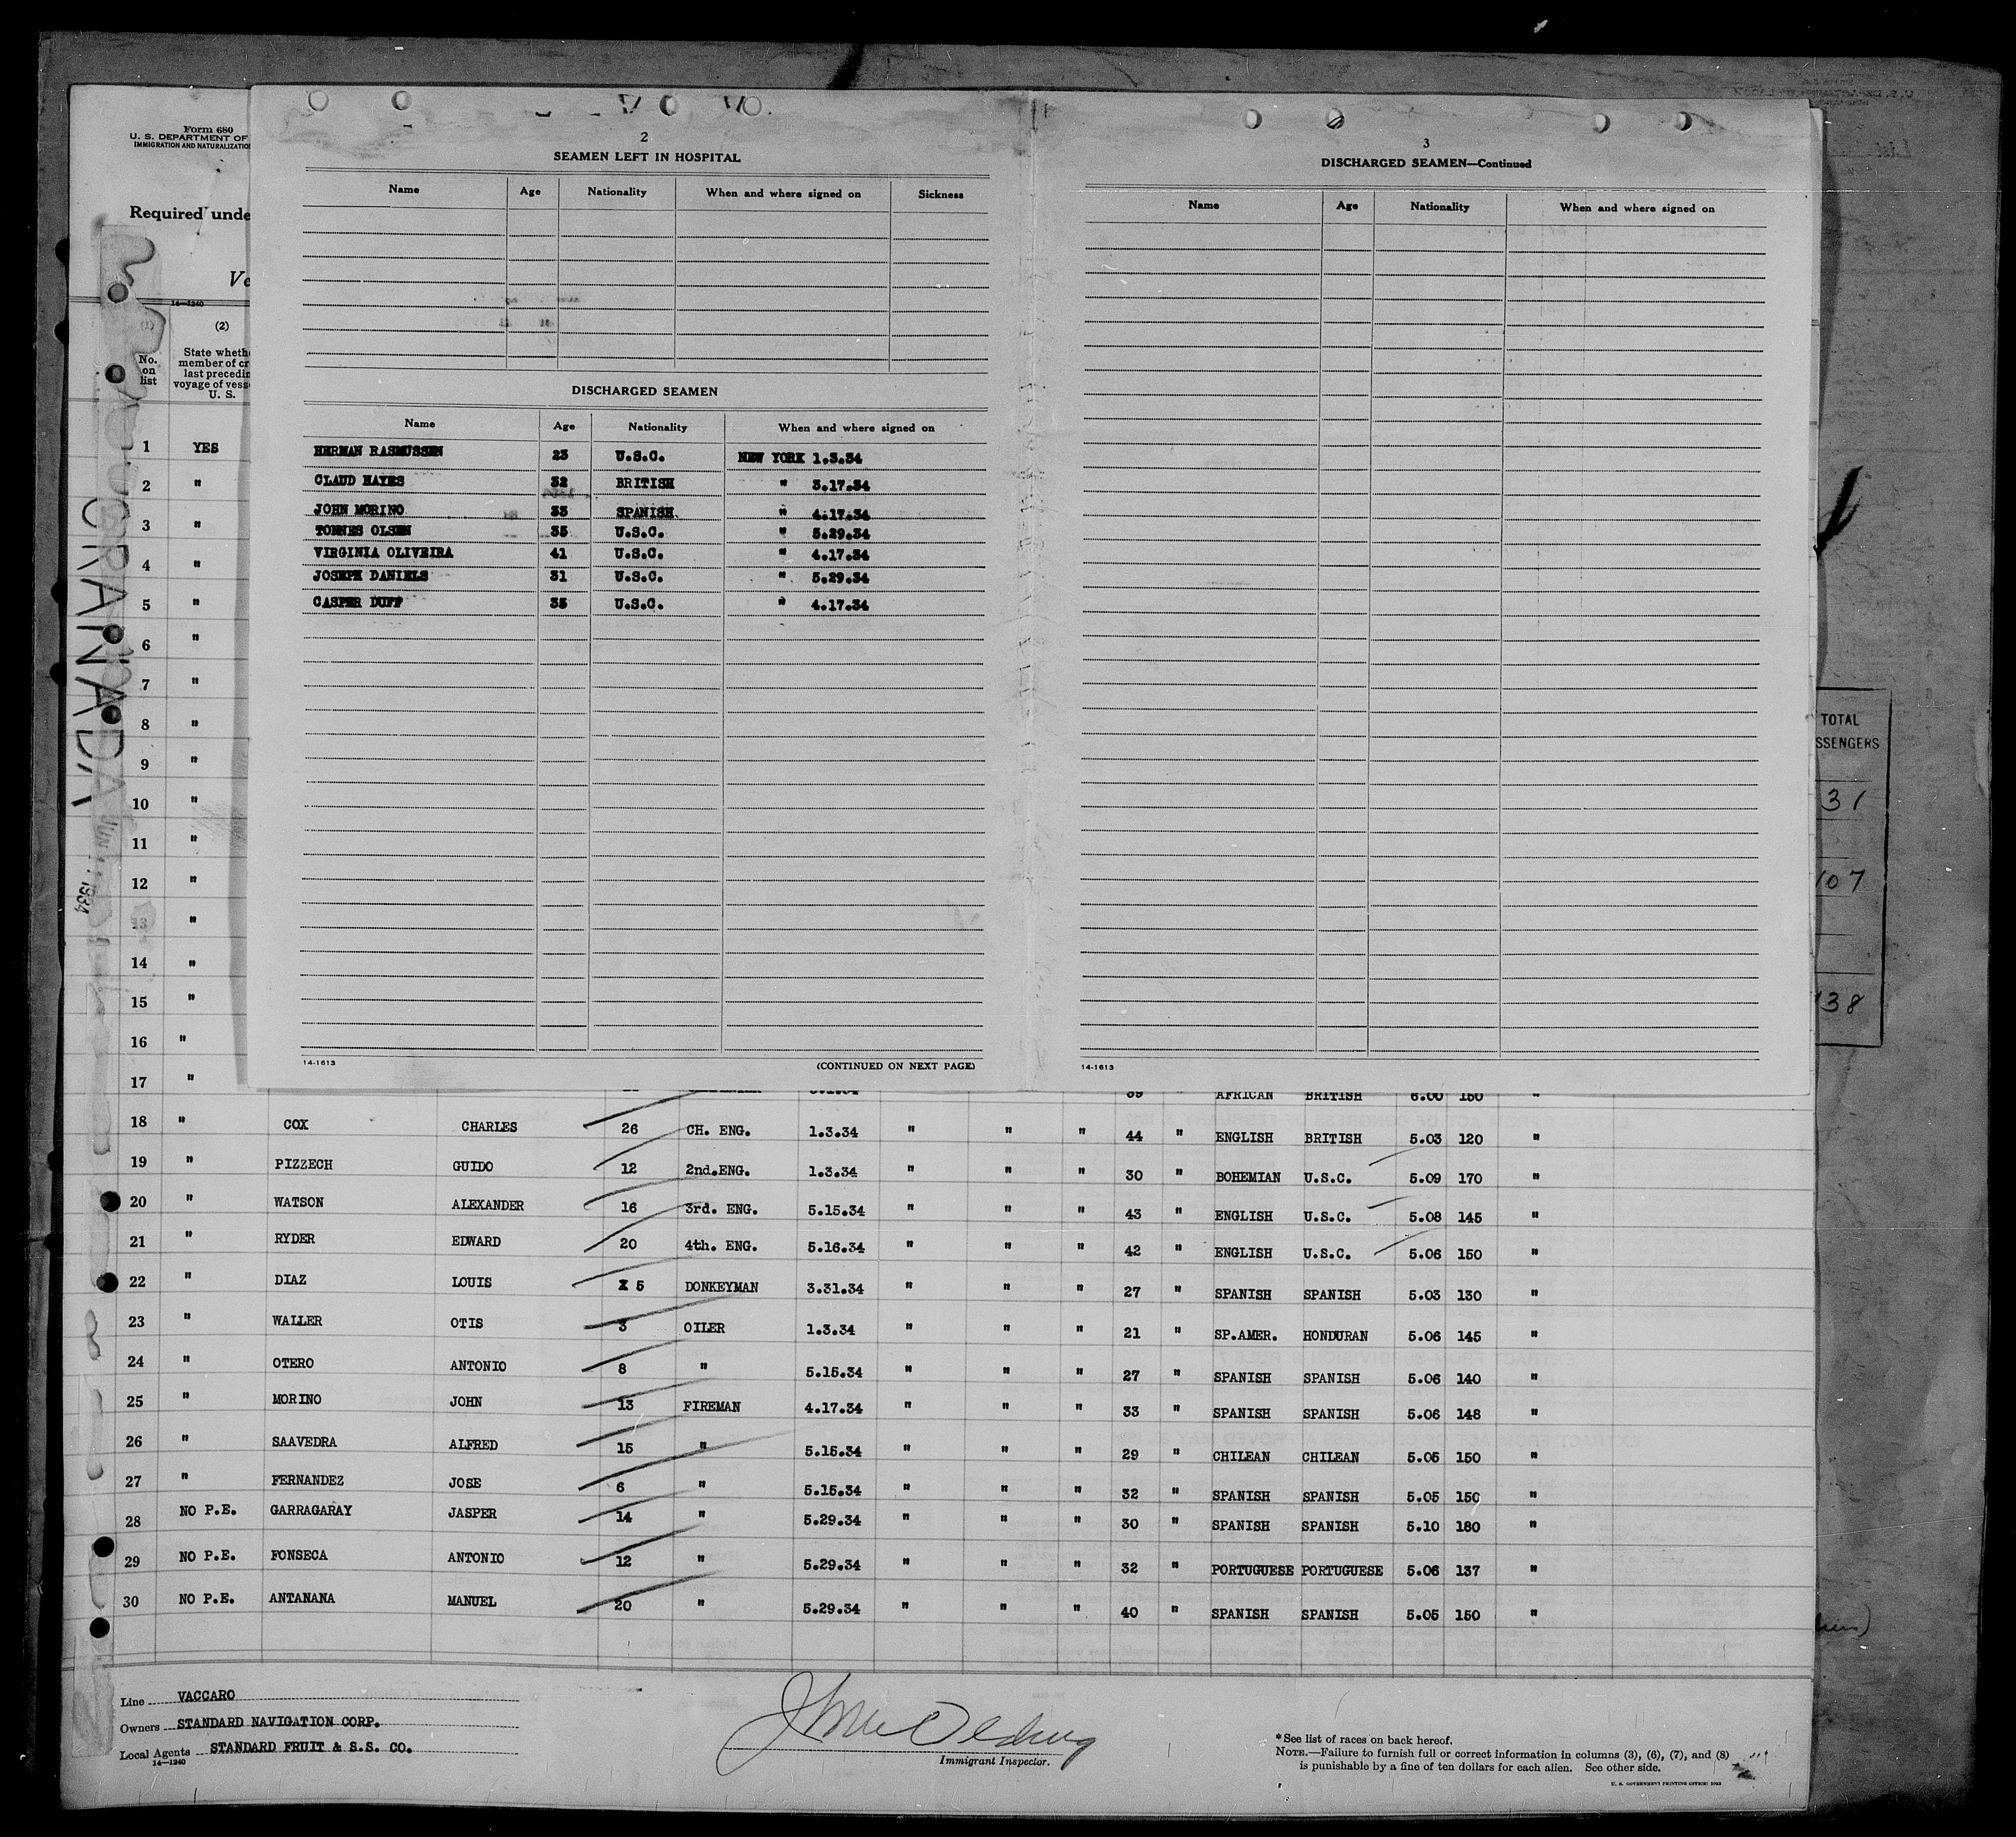 Form 680
U. S. DEPARTMENT OF
IMMIGRATION AND NATURALIZATIO
Required unde
Ve
14—1240
(1) (2)
No. on list
State wheth
member of cr
last precedin
voyage of vess
U. S.
GRANADA
1934
2
SEAMEN LEFT IN HOSPITAL
Name Age Nationality When and where signed on Sickness
DISCHARGED SEAMEN
Name Age Nationality When and where signed on
HERMAN RASMUSSEN 23 U.S.C. NEW YORK 1.3.34
CLAUD HAYES 32 BRITISH " 3.17.34
JOHN MORINO 33 SPANISH " 4.17.34
TONNES OLSEN 35 U.S.C. " 5.29.34
VIRGINIA OLIVEIRA 41 U.S.C. " 4.17.34
JOSEPH DANIELS 31 U.S.C. " 5.29.34
CASPER DUFF 35 U.S.C. " 4.17.34
14-1613 (CONTINUED ON NEXT PAGE)
3
DISCHARGED SEAMEN—Continued
Name Age Nationality When and where signed on
14-1613
TOTAL
SSENGERS
31
107
138
1 YES
2 "
3 "
4 "
5 "
6 "
7 "
8 "
9 "
10 "
11 "
12 "
13 "
14 "
15 "
16 "
17 " 39 " AFRICAN BRITISH 6.00 150 "
18 " COX CHARLES 26 CH. ENG. 1.3.34 " " " 44 " ENGLISH BRITISH 5.03 120 "
19 " PIZZECH GUIDO 12 2nd.ENG. 1.3.34 " " " 30 " BOHEMIAN U.S.C. 5.09 170 "
20 " WATSON ALEXANDER 16 3rd. ENG. 5.15.34 " " " 43 " ENGLISH U.S.C. 5.08 145 "
21 " RYDER EDWARD 20 4th. ENG. 5.16.34 " " " 42 " ENGLISH U.S.C. 5.06 150 "
22 " DIAZ LOUIS X 5 DONKEYMAN 3.31.34 " " " 27 " SPANISH SPANISH 5.03 130 "
23 " WALLER OTIS 3 OILER 1.3.34 " " " 21 " SP.AMER. HONDURAN 5.06 145 "
24 " OTERO ANTONIO 8 " 5.15.34 " " " 27 " SPANISH SPANISH 5.06 140 "
25 " MORINO JOHN 13 FIREMAN 4.17.34 " " " 33 " SPANISH SPANISH 5.06 148 "
26 " SAAVEDRA ALFRED 15 " 5.15.34 " " " 29 " CHILEAN CHILEAN 5.05 150 "
27 " FERNANDEZ JOSE 6 " 5.15.34 " " " 32 " SPANISH SPANISH 5.05 150 "
28 NO P.E. GARRAGARAY JASPER 14 " 5.29.34 " " " 30 " SPANISH SPANISH 5.10 180 "
29 NO P.E. FONSECA ANTONIO 12 " 5.29.34 " " " 32 " PORTUGUESE PORTUGUESE 5.06 137 "
30 NO P.E. ANTANANA MANUEL 20 " 5.29.34 " " " 40 " SPANISH SPANISH 5.05 150 "
Line VACCARO
Owners STANDARD NAVIGATION CORP.
Local Agents STANDARD FRUIT & S.S. CO.
14—1240
Immigrant Inspector.
*See list of races on back hereof.
NOTE.—Failure to furnish full or correct information in columns (3), (6), (7), and (8)
is punishable by a fine of ten dollars for each alien. See other side.
U. S. GOVERNMENT PRINTING OFFICE: 1933